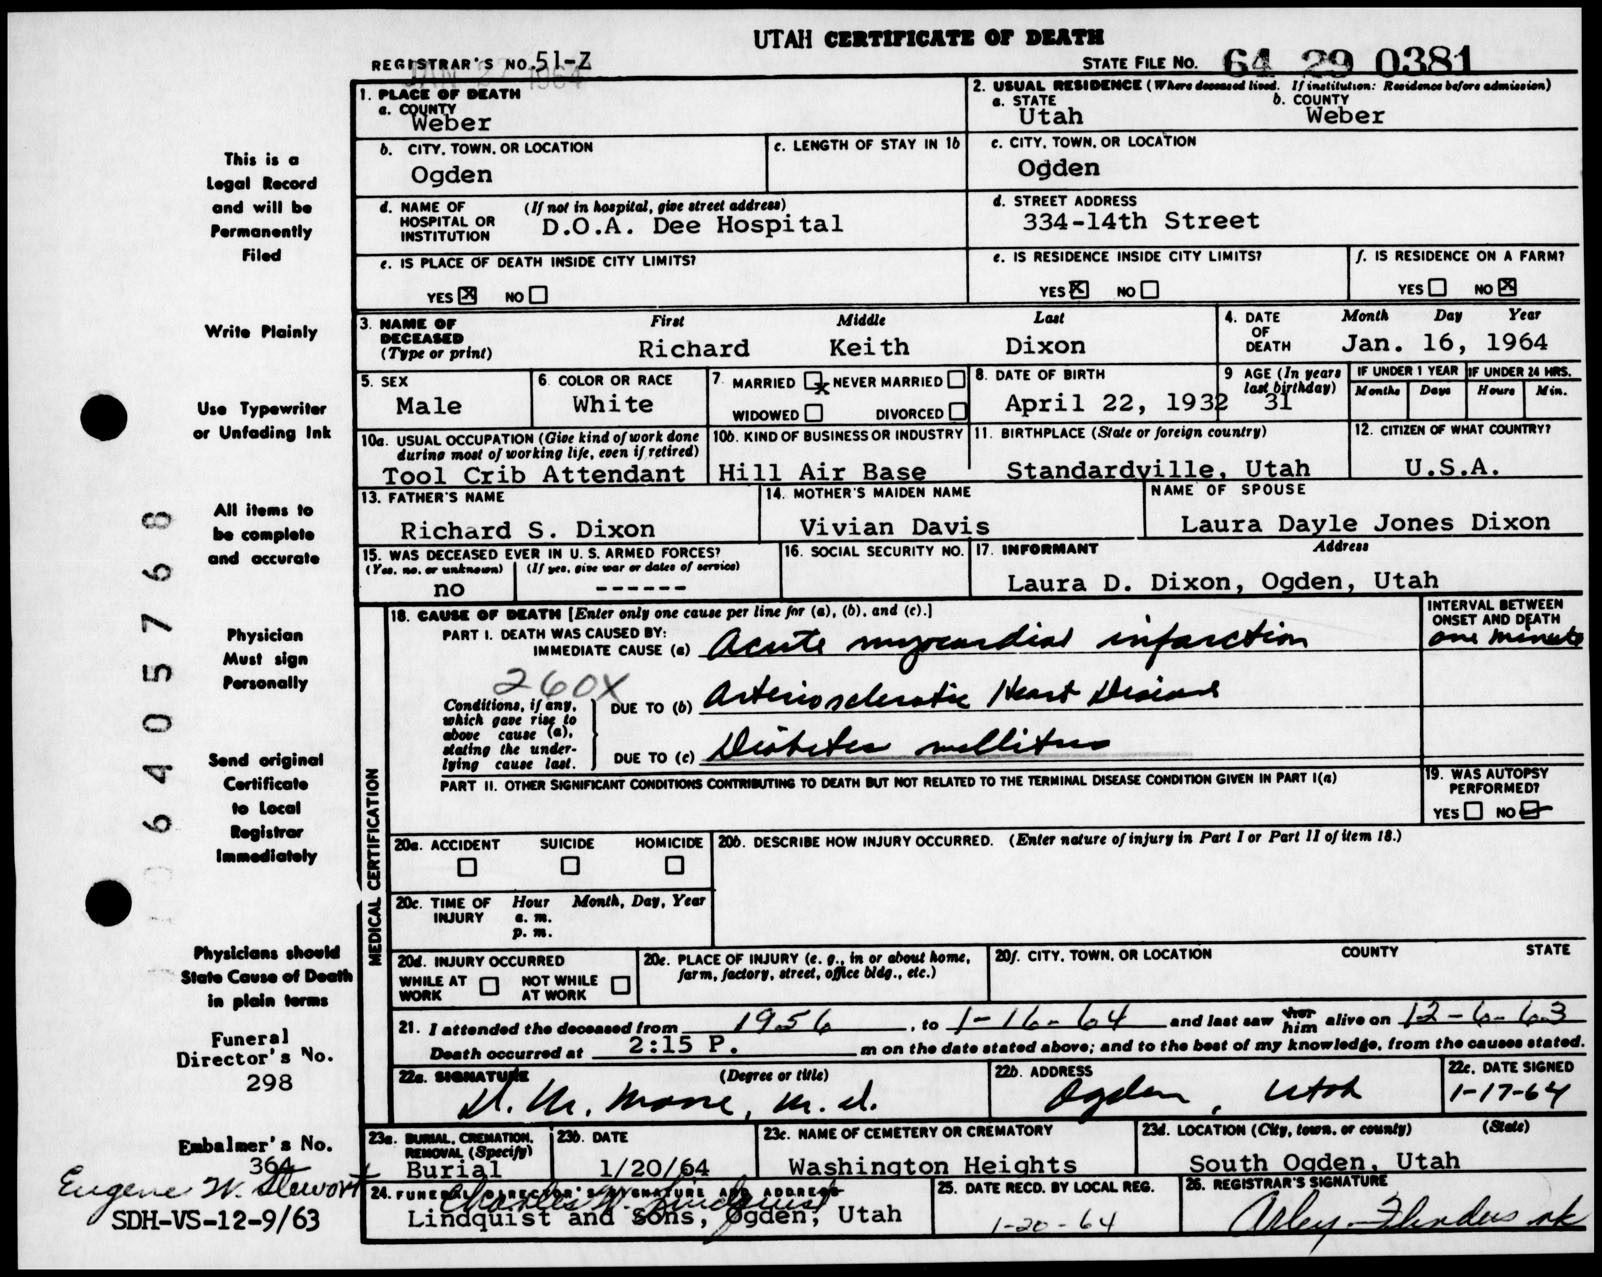 UTAH CERTIFICATE OF DEATH
REGISTRAR'S NO. 51-Z
JAN 27 1964
STATE FILE NO. 64 29 0381
1. PLACE OF DEATH
a. COUNTY
Weber
2. USUAL RESIDENCE (Where deceased lived. If institution: Residence before admission)
a. STATE b. COUNTY
Utah Weber
b. CITY, TOWN, OR LOCATION
Ogden
c. LENGTH OF STAY IN 1b
c. CITY, TOWN, OR LOCATION
Ogden
d. NAME OF HOSPITAL OR INSTITUTION (If not in hospital, give street address)
D.O.A. Dee Hospital
d. STREET ADDRESS
334-14th Street
e. IS PLACE OF DEATH INSIDE CITY LIMITS?
YES X NO
e. IS RESIDENCE INSIDE CITY LIMITS?
YES X NO
f. IS RESIDENCE ON A FARM?
YES NO X
3. NAME OF DECEASED (Type or print)
First Middle Last
Richard Keith Dixon
4. DATE OF DEATH
Month Day Year
Jan. 16, 1964
5. SEX
Male
6. COLOR OR RACE
White
7. MARRIED X NEVER MARRIED
WIDOWED DIVORCED
8. DATE OF BIRTH
April 22, 1932
9 AGE (In years last birthday)
31
IF UNDER 1 YEAR
Months Days
IF UNDER 24 HRS.
Hours Min.
10a. USUAL OCCUPATION (Give kind of work done during most of working life, even if retired)
Tool Crib Attendant
10b. KIND OF BUSINESS OR INDUSTRY
Hill Air Base
11. BIRTHPLACE (State or foreign country)
Standardville, Utah
12. CITIZEN OF WHAT COUNTRY?
U.S.A.
13. FATHER'S NAME
Richard S. Dixon
14. MOTHER'S MAIDEN NAME
Vivian Davis
NAME OF SPOUSE
Laura Dayle Jones Dixon
15. WAS DECEASED EVER IN U. S. ARMED FORCES?
(Yes, no, or unknown) (If yes, give war or dates of service)
no ------
16. SOCIAL SECURITY NO.
17. INFORMANT Address
Laura D. Dixon, Ogden, Utah
18. CAUSE OF DEATH [Enter only one cause per line for (a), (b), and (c).]
PART I. DEATH WAS CAUSED BY:
IMMEDIATE CAUSE (a) Acute myocardial infarction
INTERVAL BETWEEN ONSET AND DEATH
one minute
260X
Conditions, if any, which gave rise to above cause (a), stating the underlying cause last.
DUE TO (b) Arteriosclerotic Heart Disease
DUE TO (c) Diabetes mellitus
PART II. OTHER SIGNIFICANT CONDITIONS CONTRIBUTING TO DEATH BUT NOT RELATED TO THE TERMINAL DISEASE CONDITION GIVEN IN PART I(a)
19. WAS AUTOPSY PERFORMED?
YES NO
MEDICAL CERTIFICATION
20a. ACCIDENT SUICIDE HOMICIDE
20b. DESCRIBE HOW INJURY OCCURRED. (Enter nature of injury in Part I or Part II of item 18.)
20c. TIME OF INJURY Hour Month, Day, Year
a. m.
p. m.
20d. INJURY OCCURRED
WHILE AT WORK NOT WHILE AT WORK
20e. PLACE OF INJURY (e. g., in or about home, farm, factory, street, office bldg., etc.)
20f. CITY, TOWN, OR LOCATION COUNTY STATE
21. I attended the deceased from 1956, to 1-16-64 and last saw her him alive on 12-6-63
Death occurred at 2:15 P. m on the date stated above; and to the best of my knowledge, from the causes stated.
22a. SIGNATURE (Degree or title)
D. M. Moore, M.D.
22b. ADDRESS
Ogden, Utah
22c. DATE SIGNED
1-17-64
23a. BURIAL, CREMATION, REMOVAL (Specify)
Burial
23b. DATE
1/20/64
23c. NAME OF CEMETERY OR CREMATORY
Washington Heights
23d. LOCATION (City, town, or county) (State)
South Ogden, Utah
24. FUNERAL DIRECTOR'S SIGNATURE AND ADDRESS
Charles W. Lindquist
Lindquist and Sons, Ogden, Utah
25. DATE RECD. BY LOCAL REG.
1-20-64
26. REGISTRAR'S SIGNATURE
Arley Flinders
This is a
Legal Record
and will be
Permanently
Filed
Write Plainly
Use Typewriter
or Unfading Ink
All items to
be complete
and accurate
Physician
Must sign
Personally
Send original
Certificate
to Local
Registrar
Immediately
Physicians should
State Cause of Death
in plain terms
Funeral
Director's No.
298
Embalmer's No.
364
Eugene W. Stewart
SDH-VS-12-9/63
640 5768